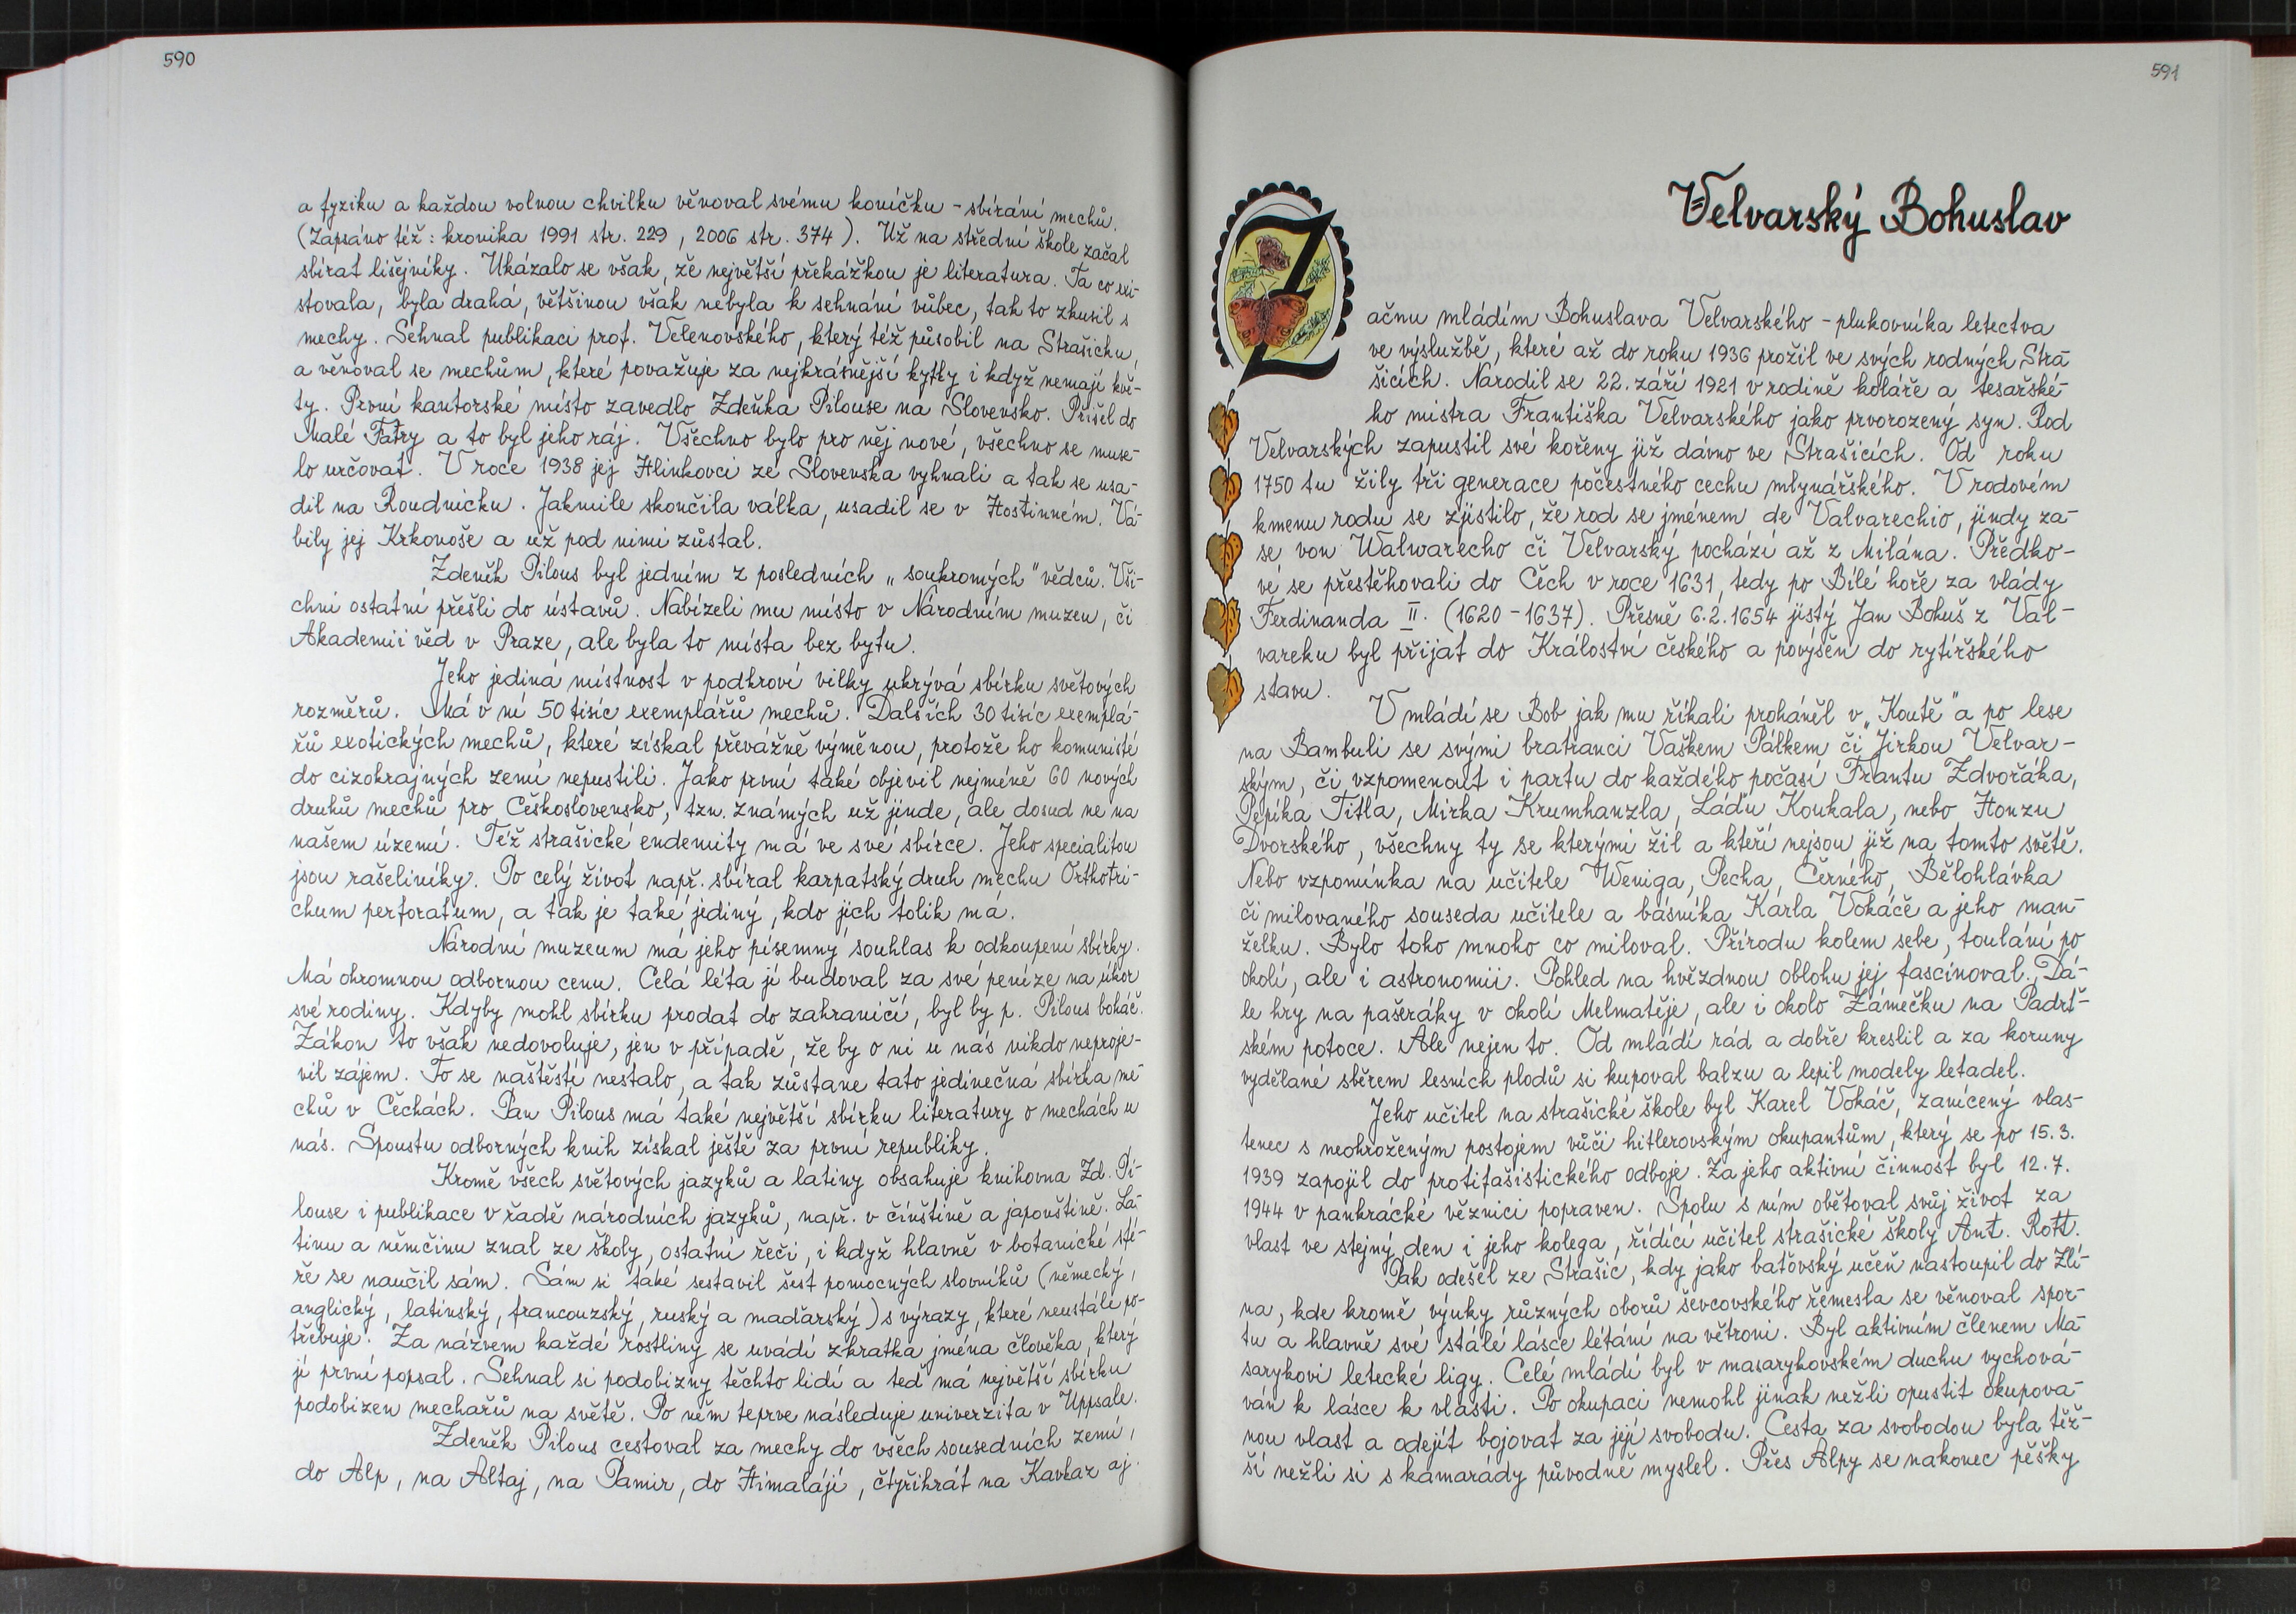 590
a fyziku a každou volnou chvilku věnoval svému koníčku - sbírání mechů.
(Zapsáno též: kronika 1991 str. 229, 2006 str. 374). Už na střední škole začal
sbírat lišejníky. Ukázalo se však, že největší překážkou je literatura. Ta co exi-
stovala, byla drahá, většinou však nebyla k sehnání vůbec, tak to zkusil s
mechy. Sehnal publikaci prof. Velenovského, který též působil na Strašicku,
a věnoval se mechům, které považuje za nejkrásnější kytky i když nemají kvě-
ty. První kantorské místo zavedlo Zdeňka Pilouse na Slovensko. Přišel do
Malé Fatry a to byl jeho ráj. Všechno bylo pro něj nové, všechno se muse-
lo určovat. V roce 1938 jej Hlinkovci ze Slovenska vyhnali a tak se usa-
dil na Roudnicku. Jakmile skončila válka, usadil se v Hostinném. Vá-
bily jej Krkonoše a už pod nimi zůstal.
Zdeněk Pilous byl jedním z posledních „soukromých" vědců. Vši-
chni ostatní přešli do ústavů. Nabízeli mu místo v Národním muzeu, či
Akademii věd v Praze, ale byla to místa bez bytu.
Jeho jediná místnost v podkroví vilky ukrývá sbírku světových
rozměrů. Má v ní 50 tisíc exemplářů mechů. Dalších 30 tisíc exemplá-
řů exotických mechů, které získal převážně výměnou, protože ho komunisté
do cizokrajných zemí nepustili. Jako první také objevil nejméně 60 nových
druhů mechů pro Československo, tzn. známých už jinde, ale dosud ne na
našem území. Též strašické endemity má ve své sbírce. Jeho specialitou
jsou rašeliníky. Po celý život např. sbíral karpatský druh mechu Orthotri-
chum perforatum, a tak je také jediný, kdo jich tolik má.
Národní muzeum má jeho písemný souhlas k odkoupení sbírky.
Má ohromnou odbornou cenu. Celá léta ji budoval za své peníze na úkor
své rodiny. Kdyby mohl sbírku prodat do zahraničí, byl by p. Pilous boháč.
Zákon to však nedovoluje, jen v případě, že by o ni u nás nikdo neproje-
vil zájem. To se naštěstí nestalo, a tak zůstane tato jedinečná sbírka me-
chů v Čechách. Pan Pilous má také největší sbírku literatury o mechách u
nás. Spoustu odborných knih získal ještě za první republiky.
Kromě všech světových jazyků a latiny obsahuje knihovna Zd. Pi-
louse i publikace v řadě národních jazyků, např. v čínštině a japonštině. La-
tinu a němčinu znal ze školy, ostatní řeči, i když hlavně v botanické sfé-
ře se naučil sám. Sám si také sestavil šest pomocných slovníků (německý,
anglický, latinský, francouzský, ruský a maďarský) s výrazy, které neustále po-
třebuje. Za názvem každé rostliny se uvádí zkratka jména člověka, který
ji první popsal. Sehnal si podobizny těchto lidí a teď má největší sbírku
podobizen mechařů na světě. Po něm teprve následuje univerzita v Uppsale.
Zdeněk Pilous cestoval za mechy do všech sousedních zemí,
do Alp, na Altaj, na Pamir, do Himalájí, čtyřikrát na Kavkaz aj.
591
Velvarský Bohuslav
Začnu mládím Bohuslava Velvarského - plukovníka letectva
ve výslužbě, které až do roku 1936 prožil ve svých rodných Stra-
šicích. Narodil se 22. září 1921 v rodině koláře a tesařské-
ho mistra Františka Velvarského jako prvorozený syn. Rod
Velvarských zapustil své kořeny již dávno ve Strašicích. Od roku
1750 tu žily tři generace počestného cechu mlynářského. V rodovém
kmenu rodu se zjistilo, že rod se jménem de Valvarechio, jindy za-
se von Walwarecho či Velvarský pochází až z Milána. Předko-
vé se přestěhovali do Čech v roce 1631, tedy po Bílé hoře za vlády
Ferdinanda II. (1620 - 1637). Přesně 6.2.1654 jistý Jan Bohuš z Val-
vareku byl přijat do Království českého a povýšen do rytířského
stavu.
V mládí se Bob jak mu říkali proháněl v „Koutě" a po lese
na Bambuli se svými bratranci Vaškem Pálkem či Jirkou Velvar-
ským, či vzpomenout i partu do každého počasí Frantu Zdvořáka,
Pepíka Titla, Mirka Krumhanzla, Láďu Koukala, nebo Honzu
Dvorského, všechny ty se kterými žil a kteří nejsou již na tomto světě.
Nebo vzpomínka na učitele Weniga, Pecha, Černého, Bělohlávka
či milovaného souseda učitele a básníka Karla Vokáče a jeho man-
želku. Bylo toho mnoho co miloval. Přírodu kolem sebe, toulání po
okolí, ale i astronomii. Pohled na hvězdnou oblohu jej fascinoval. Dá-
le hry na pašeráky v okolí Melmatěje, ale i okolo Zámečku na Padrť-
ském potoce. Ale nejen to. Od mládí rád a dobře kreslil a za koruny
vydělané sběrem lesních plodů si kupoval balzu a lepil modely letadel.
Jeho učitel na strašické škole byl Karel Vokáč, zanícený vlas-
tenec s neohroženým postojem vůči hitlerovským okupantům, který se po 15.3.
1939 zapojil do protifašistického odboje. Za jeho aktivní činnost byl 12.7.
1944 v pankrácké věznici popraven. Spolu s ním obětoval svůj život za
vlast ve stejný den i jeho kolega, řídící učitel strašické školy Ant. Rott.
Pak odešel ze Strašic, kdy jako baťovský učeň nastoupil do Zlí-
na, kde kromě výuky různých oborů ševcovského řemesla se věnoval spor-
tu a hlavně své stálé lásce létání na větroni. Byl aktivním členem Ma-
sarykovi letecké ligy. Celé mládí byl v masarykovském duchu vychová-
ván k lásce k vlasti. Po okupaci nemohl jinak nežli opustit okupova-
nou vlast a odejít bojovat za její svobodu. Cesta za svobodou byla těž-
ší nežli si s kamarády původně myslel. Přes Alpy se nakonec pěšky